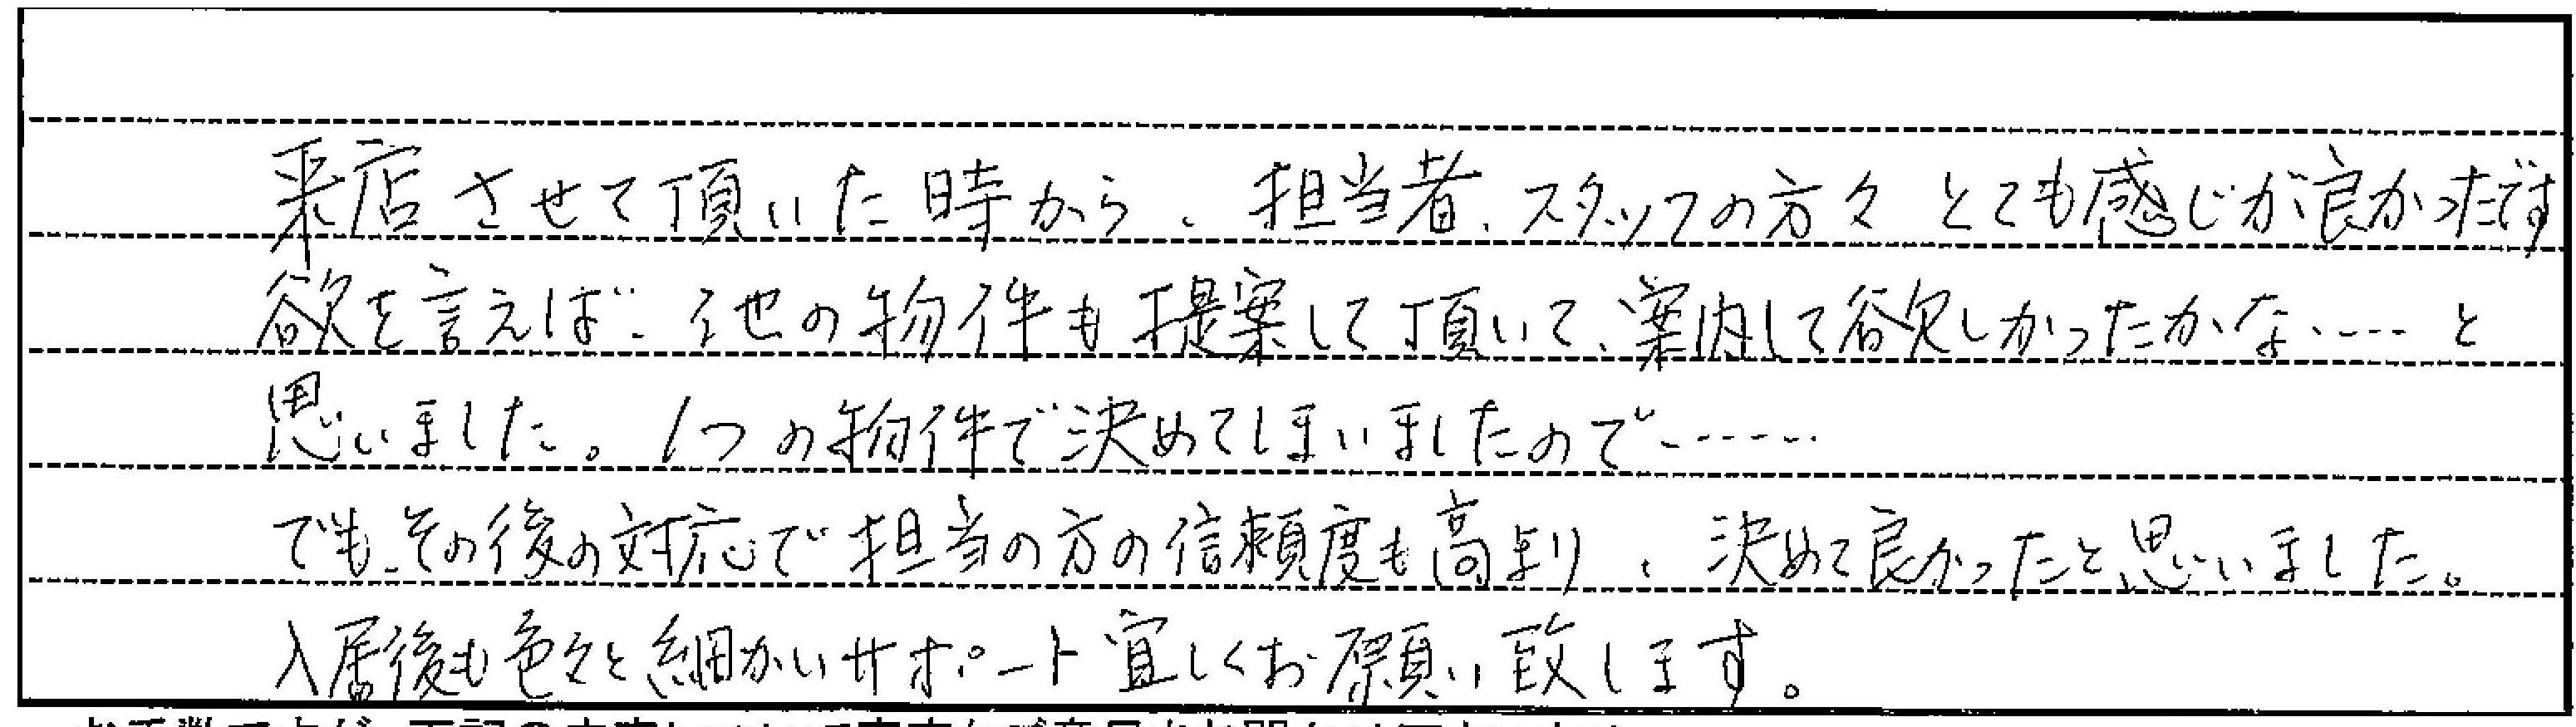 来店させて頂いた時から、担当者、スタッフの方々とても感じが良かったです
欲を言えば、他の物件も提案して頂いて、案内して欲しかったかな……と
思いました。1つの物件で決めてしまいましたので……
でも、その後の対応で担当の方の信頼度も高まり、決めて良かったと思いました。
入居後も色々と細かいサポート宜しくお願い致します。